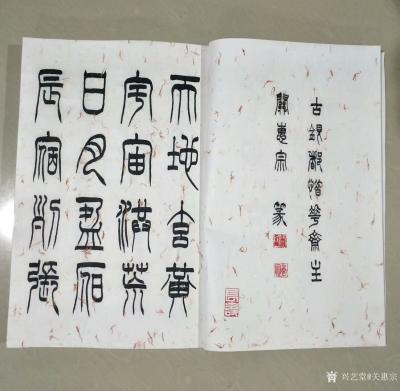 古銀都齋主
關惠宗 篆
天地玄黃
宇宙洪荒
日月盈昃
辰宿列張
兴艺堂@关惠宗